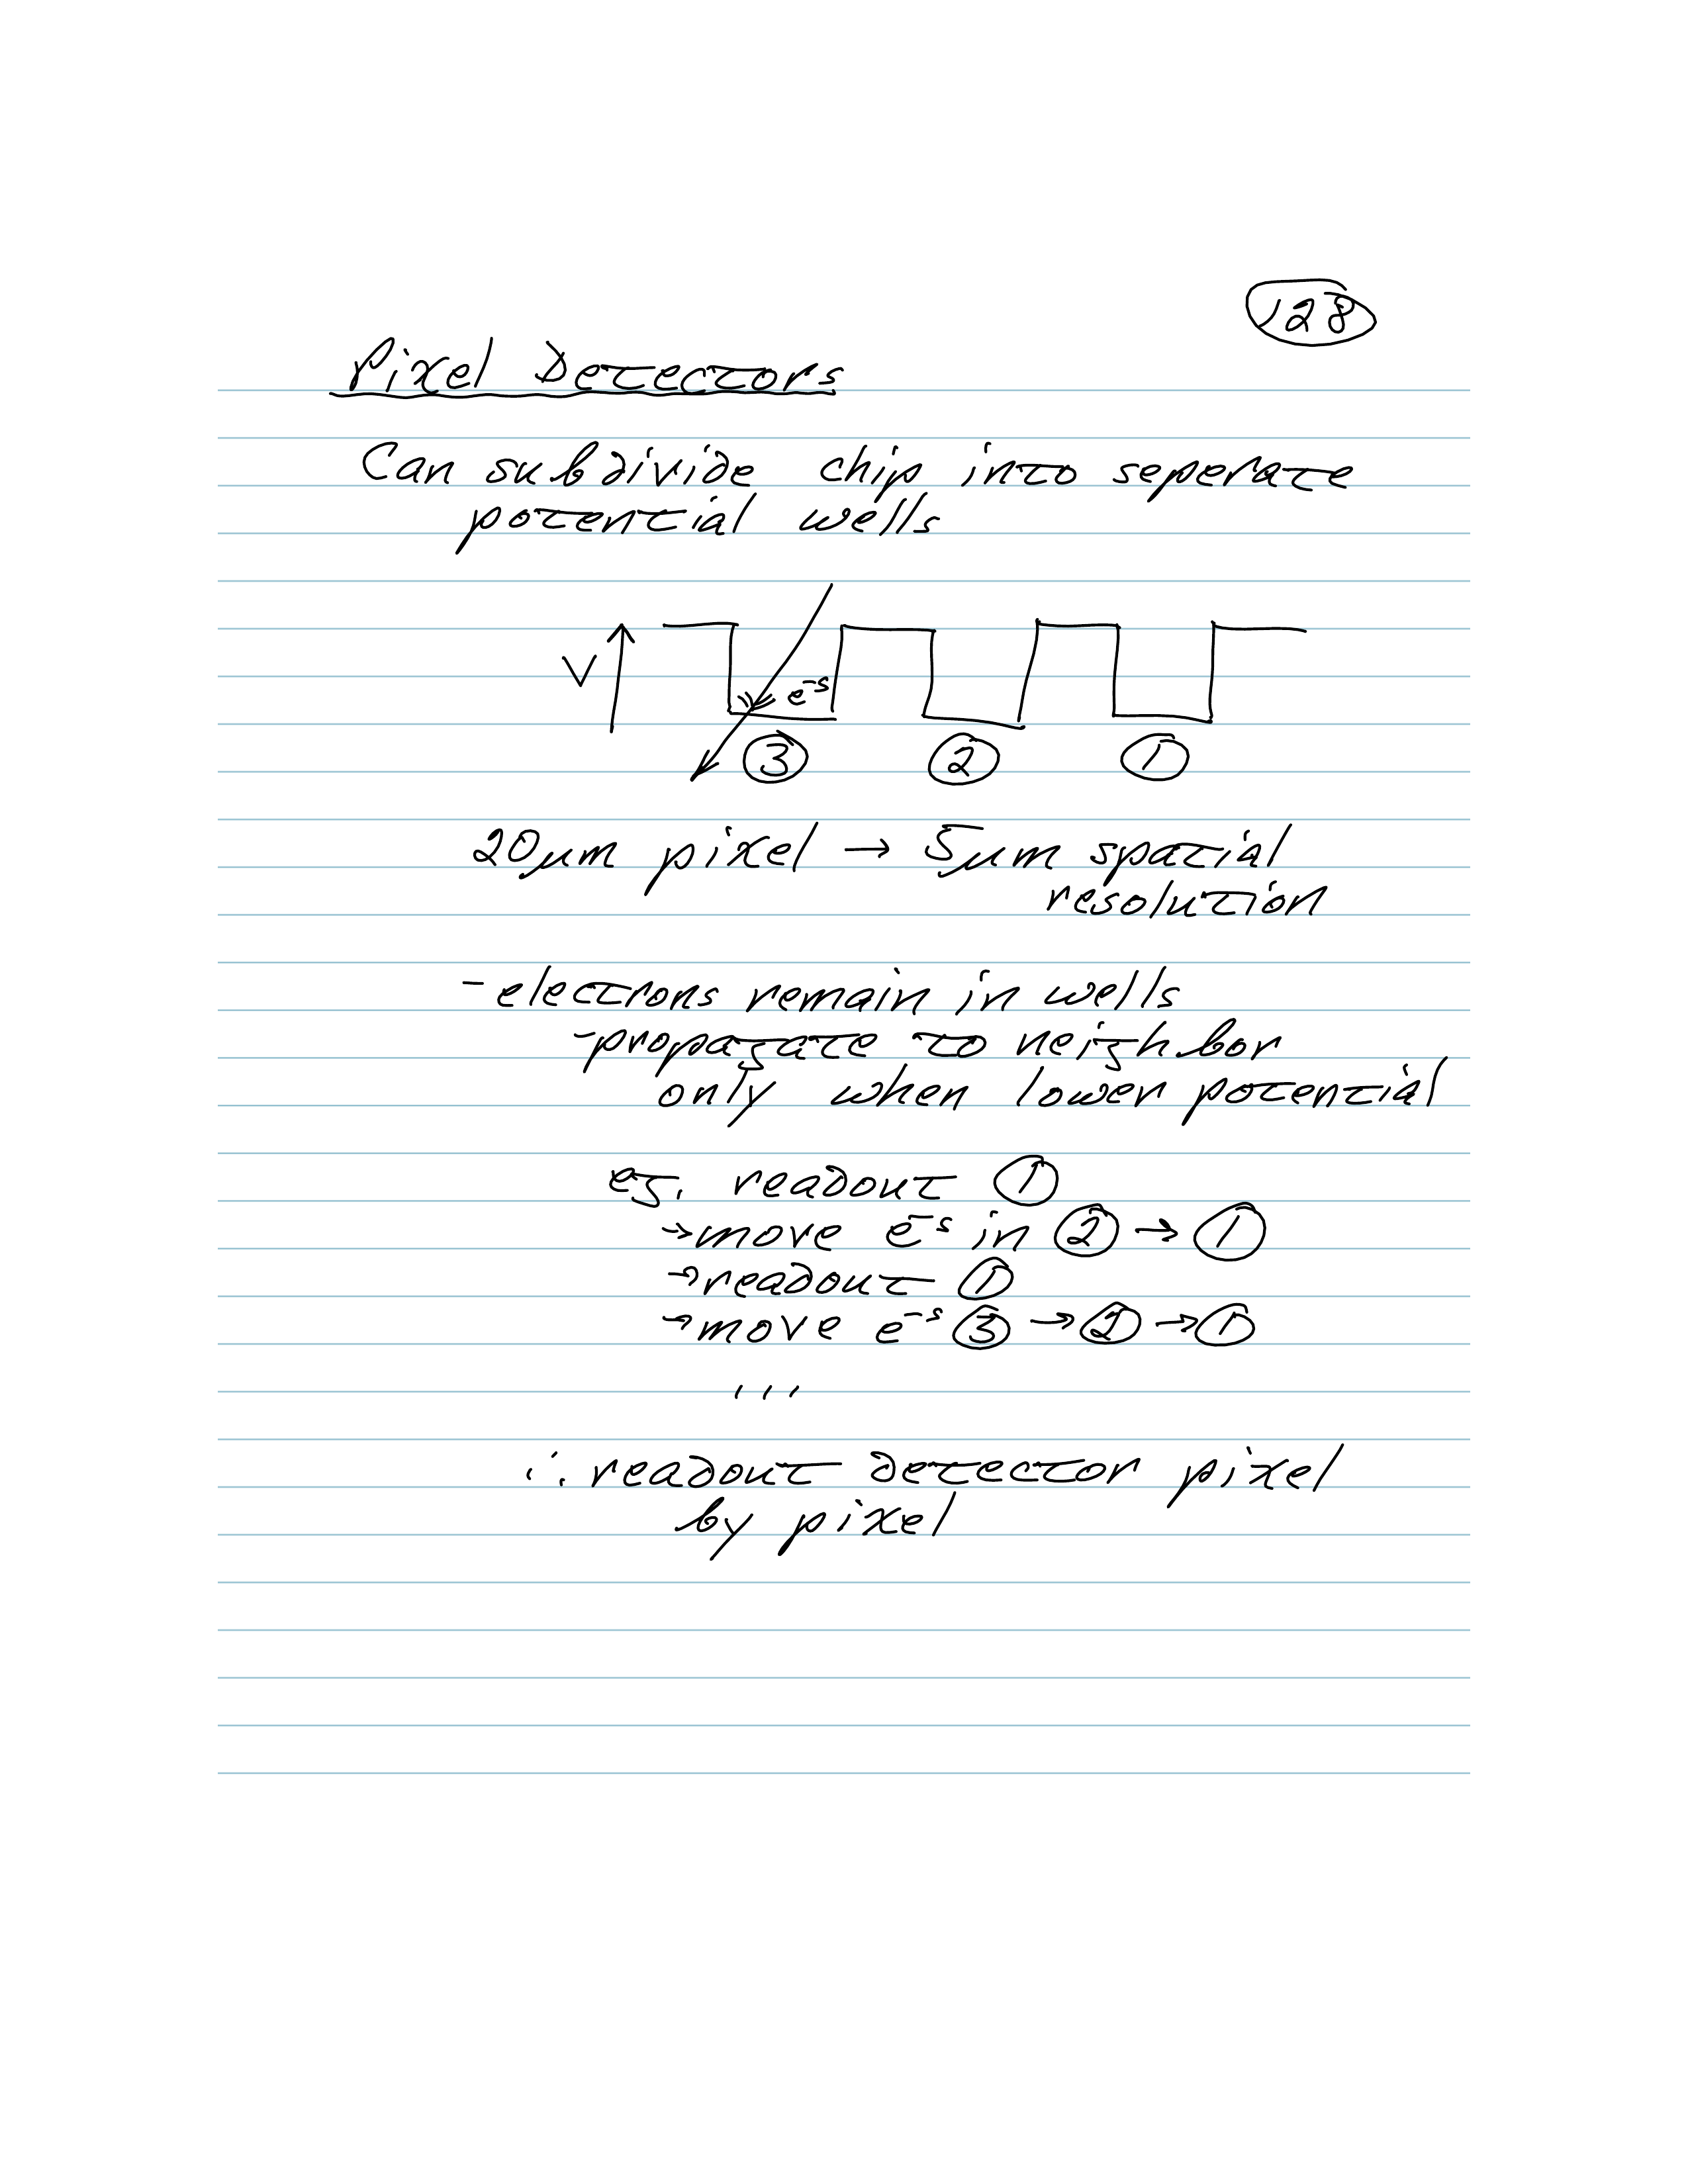 128
Pixel Detectors
Can subdivide chip into seperate
potential wells
V
e⁻s
③ ② ①
20μm pixel → 5μm spatial
resolution
- electrons remain in wells
- propagate to neighbor
only when lower potential
eg. readout ①
→ move e⁻s in ② → ①
→ readout ①
→ move e⁻s ③ → ② → ①
...
∴ readout detector pixel
by pixel